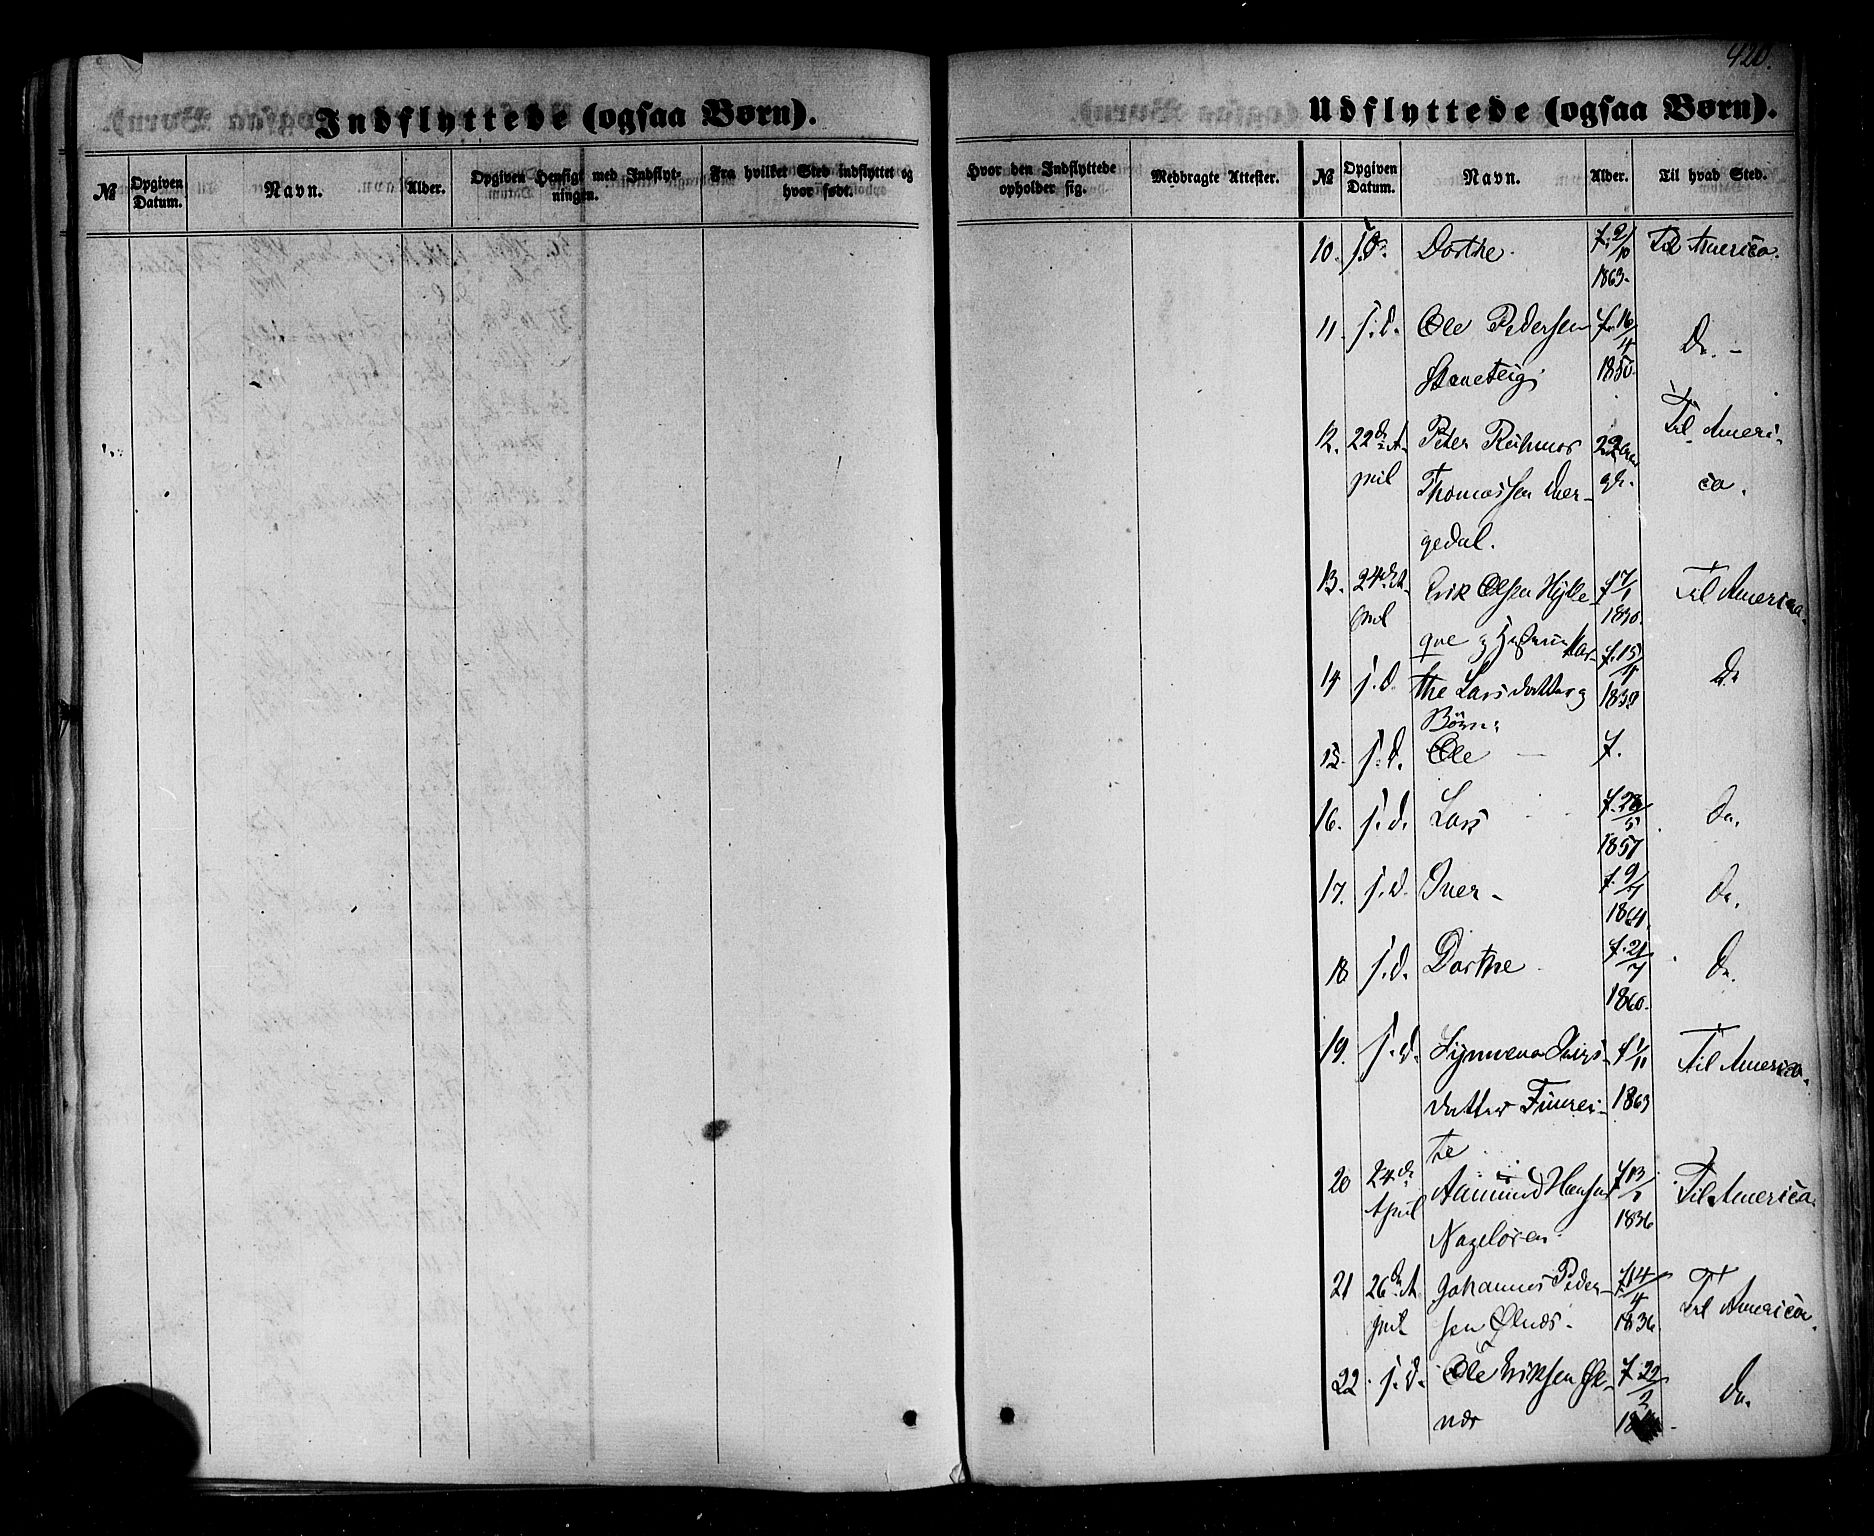 420.
Indflyttede (ogsaa Børn).
Udflyttede (ogsaa Børn).
№ Opgiven Datum. Navn. Alder. Opgiven Hensigt med Indflytningen. Fra hvilket Sted indflyttet og hvor født.
Hvor den Indflyttede opholder sig. Medbragte Attester. № Opgiven Datum. Navn. Alder. Til hvad Sted.
10. s.D. Dorthe. f. 2/10 Til America.
1863.
11. s.d. Ole Pedersen f. 16/4 Do. -
1850.
12. 22de A- Peter Thomassen 22 Aar Til Ameri-
pril gl. ca.
gedal.
13. 24de A- Erik Olsen Hylle- f 7/1 Til America.
pril 1830.
14 s.d. the Larsdatter og f. 15/4 Do
Børn: 1839
15. s.d. Ole - f.
16. s.d. Lars f. 28/5 Do.
1857
17. s.d. Iver - f. 9/7 Do.
1864.
18 s.d. Dorthe f. 21/7 Do.
1860.
19. s.d. f 1/11 Til America.
datter Fimrei- 1863
te
20 24de Aamund Hansen f 13/1 Til America.
April 1836
21 26de A- Johannes Peder- f 14/4 Til America.
pril sen Ølnæs. 1836.
22. s.d. Ole Eriksen Øl- f. 22/3 Do.
næs 18